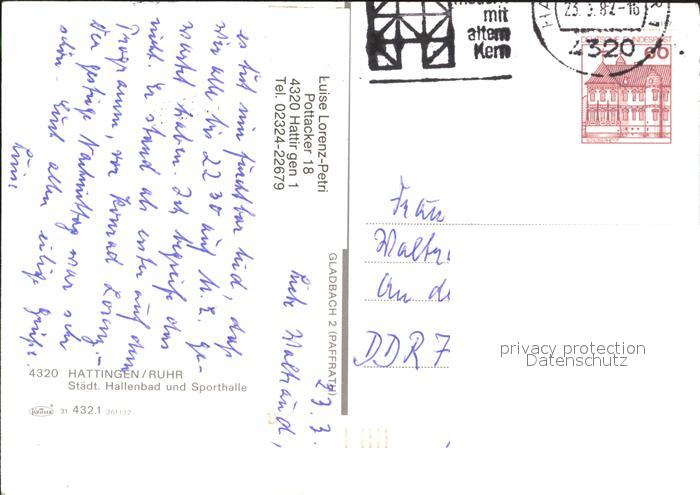 Luise Lorenz-Petri
Pottacker 18
4320 Hattingen 1
Tel. 02324-22679
23.3.
Liebe Waltraud,
es tut mir furchtbar leid, daß
wir alle bis 22 30 auf M. L. ge-
wartet haben. Ich begreife das
nicht. Er stand als erster auf dem
Programm, vor Konrad Lorenz. –
Der gestrige Nachmittag war sehr
schön. Euch allen eilige Grüße.
4320 HATTINGEN/RUHR
Städt. Hallenbad und Sporthalle
Krüger 31. 432.1 261132
GLADBACH 2 (PAFFRATH)
mit
altem
Kern
23.3.82-16
4320
DEUTSCHE BUNDESPOST
60
Frau
Waltr
An de
DDR 7
privacy protection
Datenschutz